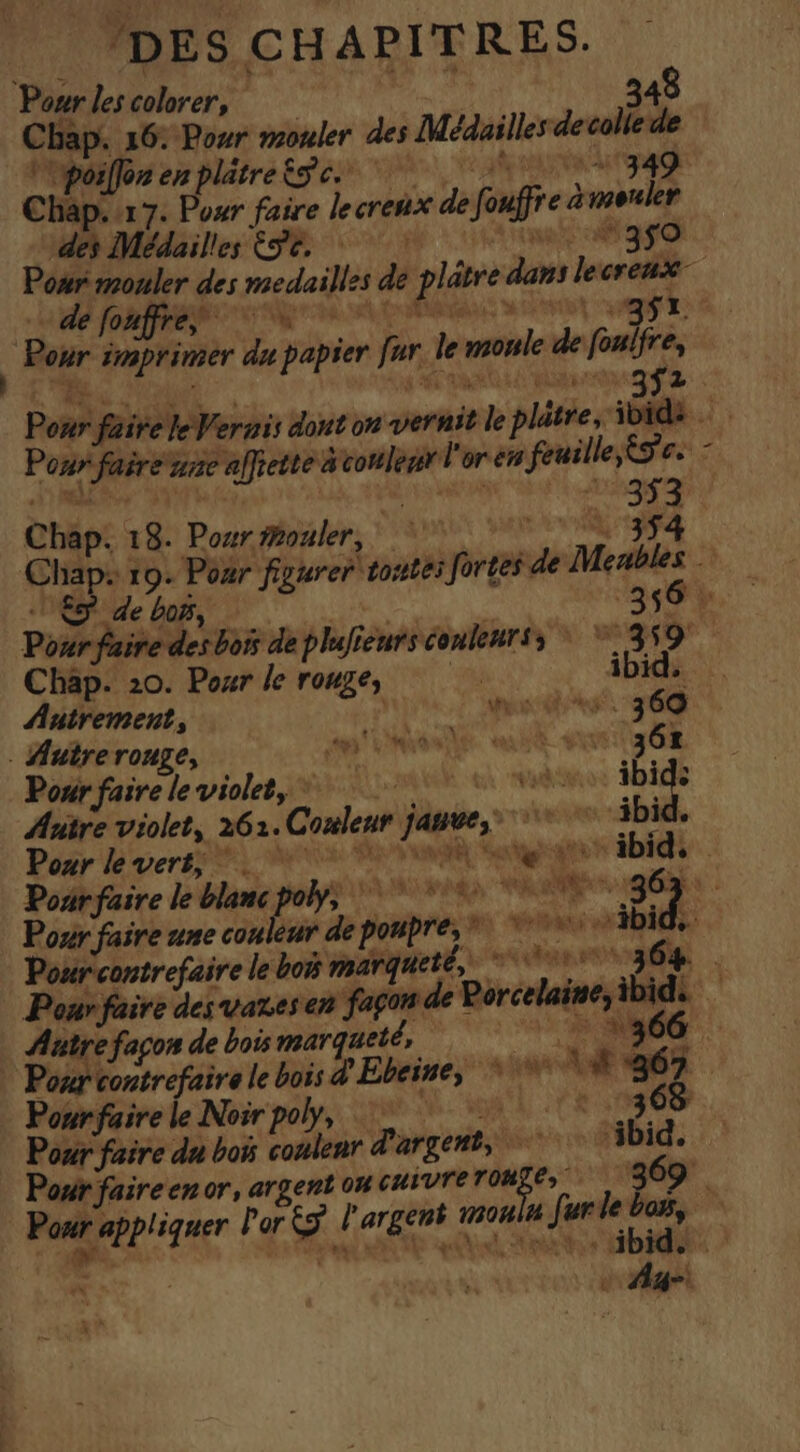 DES CHAPITRES.
Pour les colorer, 348
Chap. 16. Pour mouler des Médailles de colle de
poisson en plâtre &c. 349
Chap. 17. Pour faire le creux de souffre à mouler
des Médailles &c. 350
Pour mouler des medailles de plâtre dans le creux
de souffre, 351
Pour imprimer du papier sur le moule de soulfre,
352
Pour faire le Vernis dont on vernit le plâtre, ibid.
Pour faire une assiette à couleur l'or en feuille, &c.
353
Chap. 18. Pour mouler, 354
Chap. 19. Pour figurer toutes sortes de Meubles
& de bois, 356
Pour faire des bois de plusieurs couleurs, 359
Chap. 20. Pour le rouge, ibid.
Autrement, 360
Autre rouge, 361
Pour faire le violet, ibid.
Autre violet, 262. Couleur jaune, ibid.
Pour le vert, ibid.
Pour faire le blanc poly, 363
Pour faire une couleur de poupre, ibid.
Pour contrefaire le bois marqueté, 364
Pour faire des vazes en façon de Porcelaine, ibid.
Autre façon de bois marqueté, 366
Pour contrefaire le bois d'Ebeine, 367
Pour faire le Noir poly, 368
Pour faire du bois couleur d'argent, ibid.
Pour faire en or, argent ou cuivre rouge, 369
Pour appliquer l'or & l'argent moulu sur le bois,
ibid.
Au-